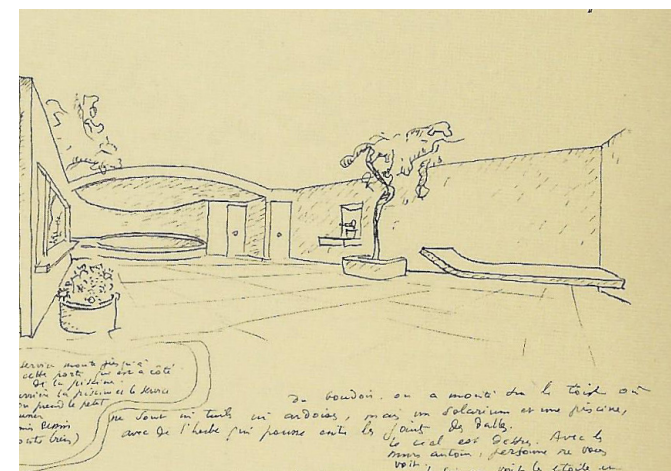 service monte jusqu'à
cette porte qui est à côté
de la piscine.
derrière la piscine et le service
on prend le petit
Du boudoir, on a monté sur le toit où
ne sont ni tuiles ni ardoises, mais un solarium et une piscine,
avec de l'herbe qui pousse entre les joints des dalles.
Le ciel est dessus. Avec les
murs autour, personne ne vous
voit.